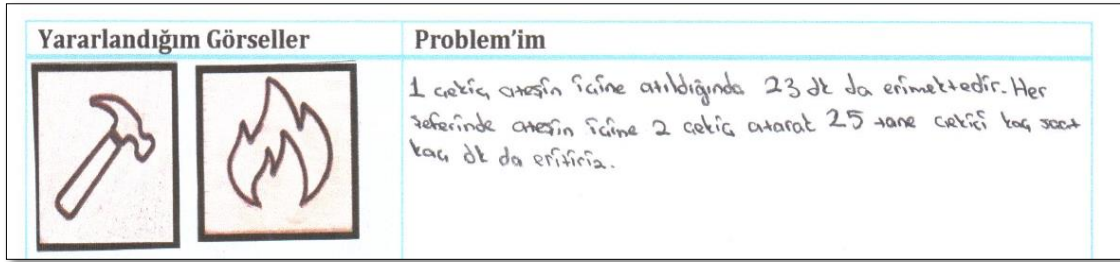 Yararlandığım Görseller
Problem'im
1 çekiç ateşin içine atıldığında 23 dk da erimektedir. Her
seferinde ateşin içine 2 çekiç atarak 25 tane çekiçi kaç saat
kaç dk da eritiriz.